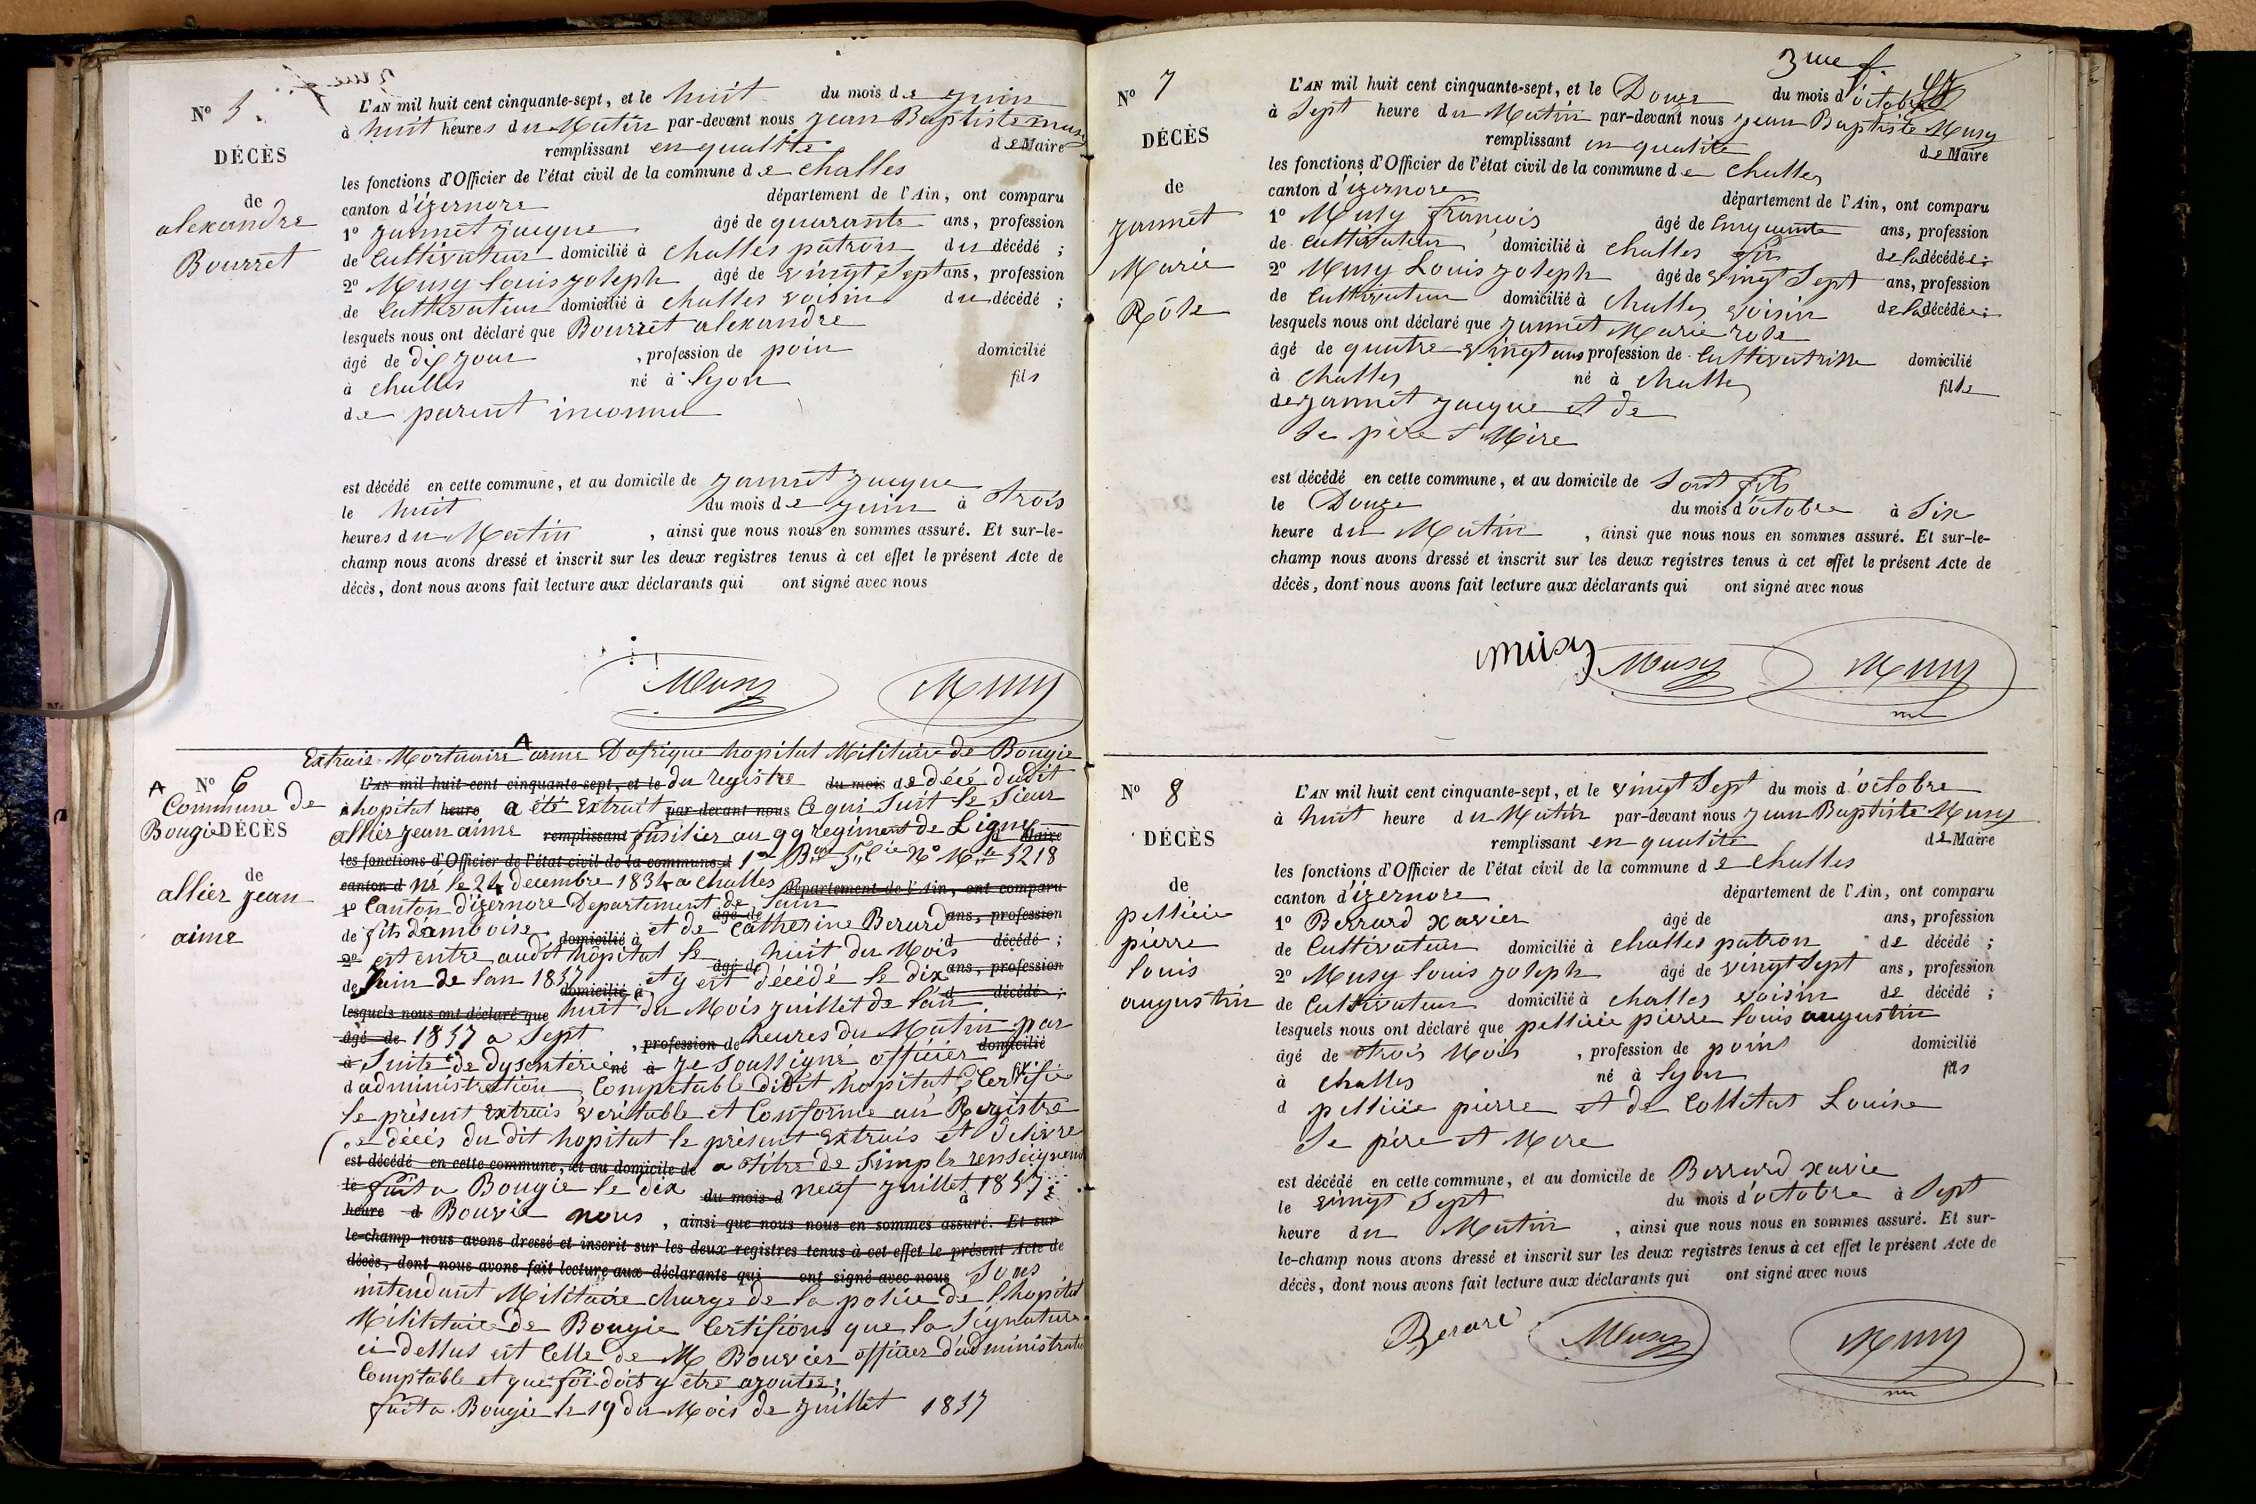 Nº 5.
DÉCÈS
de
alexandre
Bourret
L'AN mil huit cent cinquante-sept, et le huit du mois de juin
à huit heures du Matin par-devant nous jean Baptiste musy
remplissant en qualité de Maire
les fonctions d'Officier de l'état civil de la commune de challes
canton d'izernore département de l'Ain, ont comparu
1º jannet jacque âgé de quarante ans, profession
de Cultivateur domicilié à challes patron du décédé ;
2º Musy louis joseph âgé de vingt sept ans, profession
de Cultivateur domicilié à challes voisin du décédé ;
lesquels nous ont déclaré que Bourret alexandre
âgé de dix jour , profession de poin domicilié
à challes né à lyon fils
de parent inconnu
est décédé en cette commune, et au domicile de jannet jacque
le huit du mois de juin à trois
heures du Matin , ainsi que nous nous en sommes assuré. Et sur-le-
champ nous avons dressé et inscrit sur les deux registres tenus à cet effet le présent Acte de
décès, dont nous avons fait lecture aux déclarants qui ont signé avec nous
Musy Musy
Extrais Mortuaire arme Dafrique hopital Militaire de Bougie
A Nº 6
Commune de
Bougie DÉCÈS
de
allier jean
aime
L'AN mil huit cent cinquante-sept, et le du registre du mois de décé dudit
à hopital heure a été extrait par-devant nous ce qui suit le Sieur
allier jean aime remplissant fusilier au 99 regiment de Ligne d Maire
les fonctions d'Officier de l'état civil de la commune d 1er Bon 5e Cie Nº Mle 5218
canton d né le 24 decembre 1834 a challes département de l'Ain, ont comparu
1º Canton d'izernore Departement de lain âgé de ans, profession
de fils damboise domicilié à et de Catherine Berard d décédé ;
2º est entre audit hôpital le âgé de huit du Mois ans, profession
de Juin de lan 1857 domicilié à et y est décédé le dix d décédé ;
lesquels nous ont déclaré que huit du Mois juillet de l'an
âgé de 1857 a Sept , profession de heures du Matin par domicilié
à Suite de Dysenterie né à Je soussigné officier
d administration Comptable dudit hopital Certifie
le présent extrais veritable et Conforme au Registre
de décés du dit hopital le présent extrais et delivre
est décédé en cette commune, et au domicile de a titre de simple renseignem
le fait a Bougie le dix du mois d neuf juillet à 1857
heure d Bouvie nous , ainsi que nous nous en sommes assuré. Et sur
le-champ nous avons dressé et inscrit sur les deux registres tenus à cet effet le présent Acte de
décès, dont nous avons fait lecture aux déclarants qui ont signé avec nous Sous
intendant Militaire charge de la police de l'hopital
Militaire de Bougie Certifions que la Signature
ci dessus est Celle de M Bouvier officier d'administrati
Comptable et que foi doit y etre ajoutée;
fait a Bougie le 19 du Mois de juillet 1857
3me f.
Nº 7
DÉCÈS
de
jannet
Marie
Rose
L'AN mil huit cent cinquante-sept, et le Douze du mois d'octobre
à Sept heure du Matin par-devant nous jean Baptiste Musy
remplissant en qualité de Maire
les fonctions d'Officier de l'état civil de la commune de challes
canton d'izernore département de l'Ain, ont comparu
1º Musy françois âgé de Cinquante ans, profession
de Cultivateur domicilié à challes fils de la décédée ;
2º Musy Louis joseph âgé de vingt Sept ans, profession
de Cultivateur domicilié à challes voisin de la décédée ;
lesquels nous ont déclaré que jannet Marie rose
âgé de quatre vingt ans profession de Cultivatrisse domicilié
à challes né à challes fille
de jannet jacque et de
Se père & Mère
est décédé en cette commune, et au domicile de Sont fils
le Douze du mois d'octobre à Six
heure du Matin , ainsi que nous nous en sommes assuré. Et sur-le-
champ nous avons dressé et inscrit sur les deux registres tenus à cet effet le présent Acte de
décès, dont nous avons fait lecture aux déclarants qui ont signé avec nous
musy Musy Musy
Nº 8
DÉCÈS
de
pellicie
pierre
louis
augustin
L'AN mil huit cent cinquante-sept, et le vingt Sept du mois d'octobre
à huit heure du Matin par-devant nous jean Baptiste Musy
remplissant en qualité de Maire
les fonctions d'Officier de l'état civil de la commune de challes
canton d'izernore département de l'Ain, ont comparu
1º Berrard xavier âgé de ans, profession
de Cultivateur domicilié à challes patron de décédé ;
2º Musy louis joseph âgé de vingt Sept ans, profession
de Cultivateur domicilié à challes voisin de décédé ;
lesquels nous ont déclaré que pellicie pierre louis augustin
âgé de trois Mois , profession de poins domicilié
à challes né à lyon fils
d pellicie pierre et de Collitat Louise
Se père et Mere
est décédé en cette commune, et au domicile de Berrard xavie
le vingt Sept du mois d'octobre à Sept
heure du Matin , ainsi que nous nous en sommes assuré. Et sur-
le-champ nous avons dressé et inscrit sur les deux registres tenus à cet effet le présent Acte de
décès, dont nous avons fait lecture aux déclarants qui ont signé avec nous
Berard Musy Musy